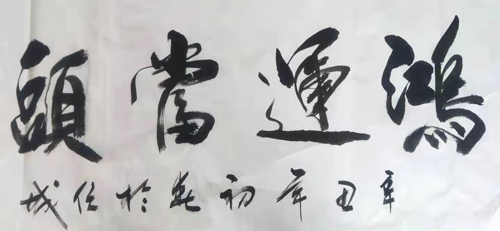 鴻運當頭
辛丑年初春於任城